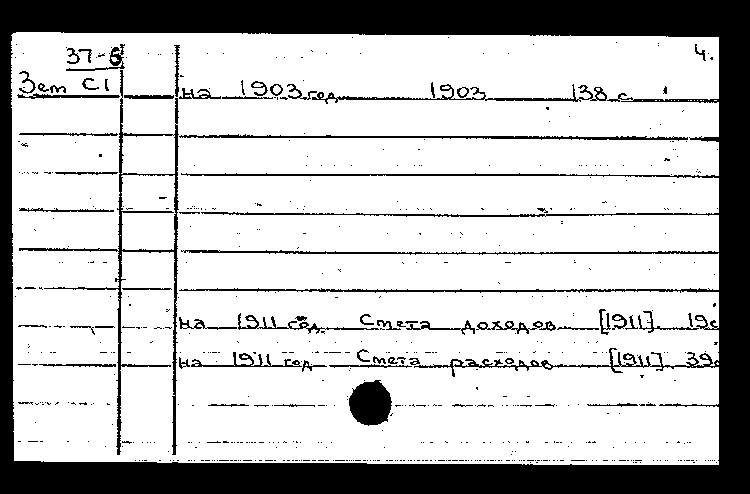 37-6 4.
Зет С1 на 1903 год 1903 138 с
на 1911 год. Смета доходов [1911]. 19с
на 1911 год Смета расходов [1911] 39с